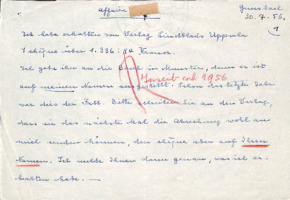 affaire
20.7.56.
Ich habe erhalten von Verlag Lindblads Uppsala
1 chèque über 1.336.84 Kronen.
Ich gebe ihn an die Bank in Münster, denn er ist
auf meinen Namen ausgestellt. Schon das letzte Jahr
Honorib. erh. 1956
war dies der Fall. Bitte schreiben Sie an den Verlag,
dass sie das nächste Mal die Abrechnung wohl an
mich senden können, den chèque aber auf Ihren
Namen. Ich melde Ihnen dann genau, was ich er-
halten habe. —